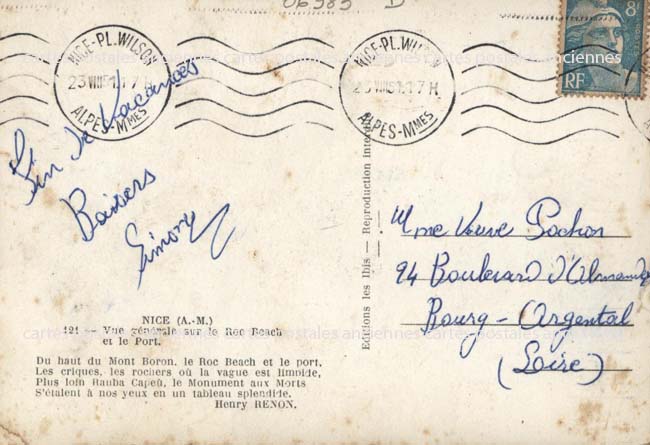 06383 D
NICE-PL. WILSON
23 VIII 51. 17H
ALPES-MMES
NICE-PL. WILSON
17H
ALPES-MMES
8
RF
cartes postales anciennes
Fin de Vacances
Baisers
Simon
Mme Veuve Pochon
24 Boulevard d'Almandet
Bourg-Argental
(Loire)
Editions les Ibis — Reproduction interdite
NICE (A.-M.)
121 — Vue générale sur le Roc Beach
et le Port.
Du haut du Mont Boron, le Roc Beach et le port,
Les criques, les rochers où la vague est limpide,
Plus loin Rauba Capeù, le Monument aux Morts
S'étalent à nos yeux en un tableau splendide.
Henry RENON.